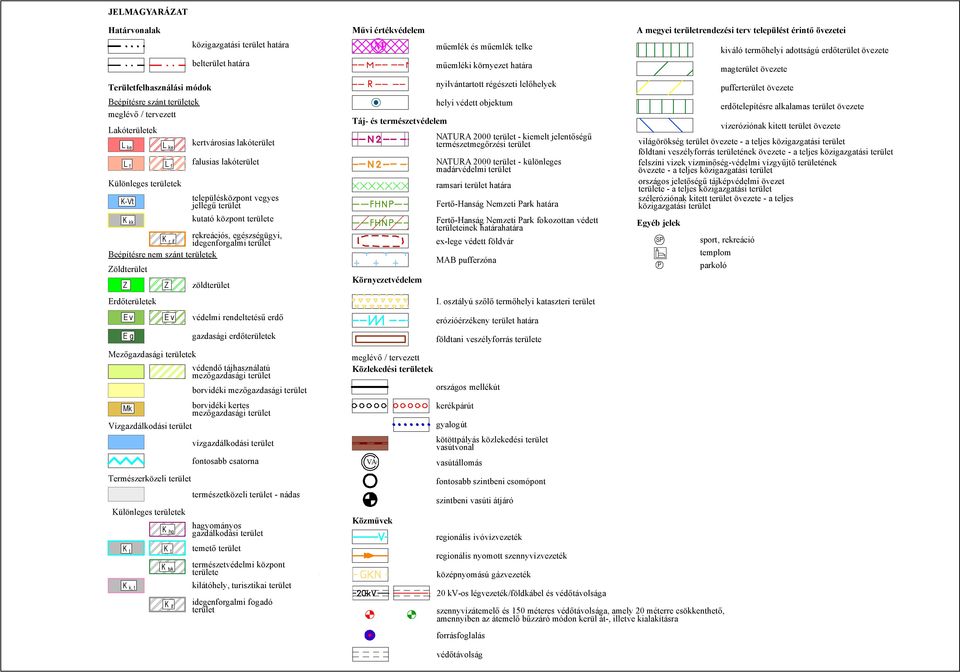 JELMAGYARÁZAT
Határvonalak
közigazgatási terület határa
belterület határa
Területfelhasználási módok
Beépítésre szánt területek
meglévő / tervezett
Lakóterületek
L ke L ke kertvárosias lakóterület
L f L f falusias lakóterület
Különleges területek
K-Vt településközpont vegyes
jellegű terület
K kk kutató központ területe
rekreációs, egészségügyi,
idegenforgalmi terület
Beépítésre nem szánt területek
Zöldterület
Z Z zöldterület
Erdőterületek
Ev Ev védelmi rendeltetésű erdő
Eg gazdasági erdőterületek
Mezőgazdasági területek
védendő tájhasználatú
mezőgazdasági terület
borvidéki mezőgazdasági terület
Mk borvidéki kertes
mezőgazdasági terület
Vízgazdálkodási terület
vízgazdálkodási terület
fontosabb csatorna
Természerközeli terület
természetközeli terület - nádas
Különleges területek
hagyományos
gazdálkodási terület
K t K t temető terület
természetvédelmi központ
területe
kilátóhely, turisztikai terület
K if idegenforgalmi fogadó
terület
Művi értékvédelem
M műemlék és műemlék telke
M műemléki környezet határa
R nyilvántartott régészeti lelőhelyek
helyi védett objektum
Táj- és természetvédelem
N2 NATURA 2000 terület - kiemelt jelentőségű
természetmegőrzési terület
N2 NATURA 2000 terület - különleges
madárvédelmi terület
ramsari terület határa
FHNP Fertő-Hanság Nemzeti Park határa
FHNP Fertő-Hanság Nemzeti Park fokozottan védett
területeinek határahatára
ex-lege védett földvár
MAB pufferzóna
Környezetvédelem
I. osztályú szőlő termőhelyi kataszteri terület
erózióérzékeny terület határa
földtani veszélyforrás területe
meglévő / tervezett
Közlekedési területek
országos mellékút
kerékpárút
gyalogút
kötöttpályás közlekedési terület
vasútvonal
VA vasútállomás
fontosabb szintbeni csomópont
szintbeni vasúti átjáró
Közművek
V regionális ivóvízvezeték
regionális nyomott szennyvízvezeték
GKN középnyomású gázvezeték
20kV 20 kV-os légvezeték/földkábel és védőtávolsága
szennyvízátemelő és 150 méteres védőtávolsága, amely 20 méterre csökkenthető,
amennyiben az átemelő bűzzáró módon kerül át-, illetve kialakításra
forrásfoglalás
védőtávolság
A megyei területrendezési terv települést érintő övezetei
kiváló termőhelyi adottságú erdőterület övezete
magterület övezete
pufferterület övezete
erdőtelepítésre alkalamas terület övezete
vízeróziónak kitett terület övezete
világörökség terület övezete - a teljes közigazgatási terület
földtani veszélyforrás területének övezete - a teljes közigazgatási terület
felszíni vizek vízminőség-védelmi vízgyűjtő területének
övezete - a teljes közigazgatási terület
országos jeletőségű tájképvédelmi övezet
területe - a teljes közigazgatási terület
széleróziónak kitett terület övezete - a teljes
közigazgatási terület
Egyéb jelek
SP sport, rekreáció
templom
P parkoló